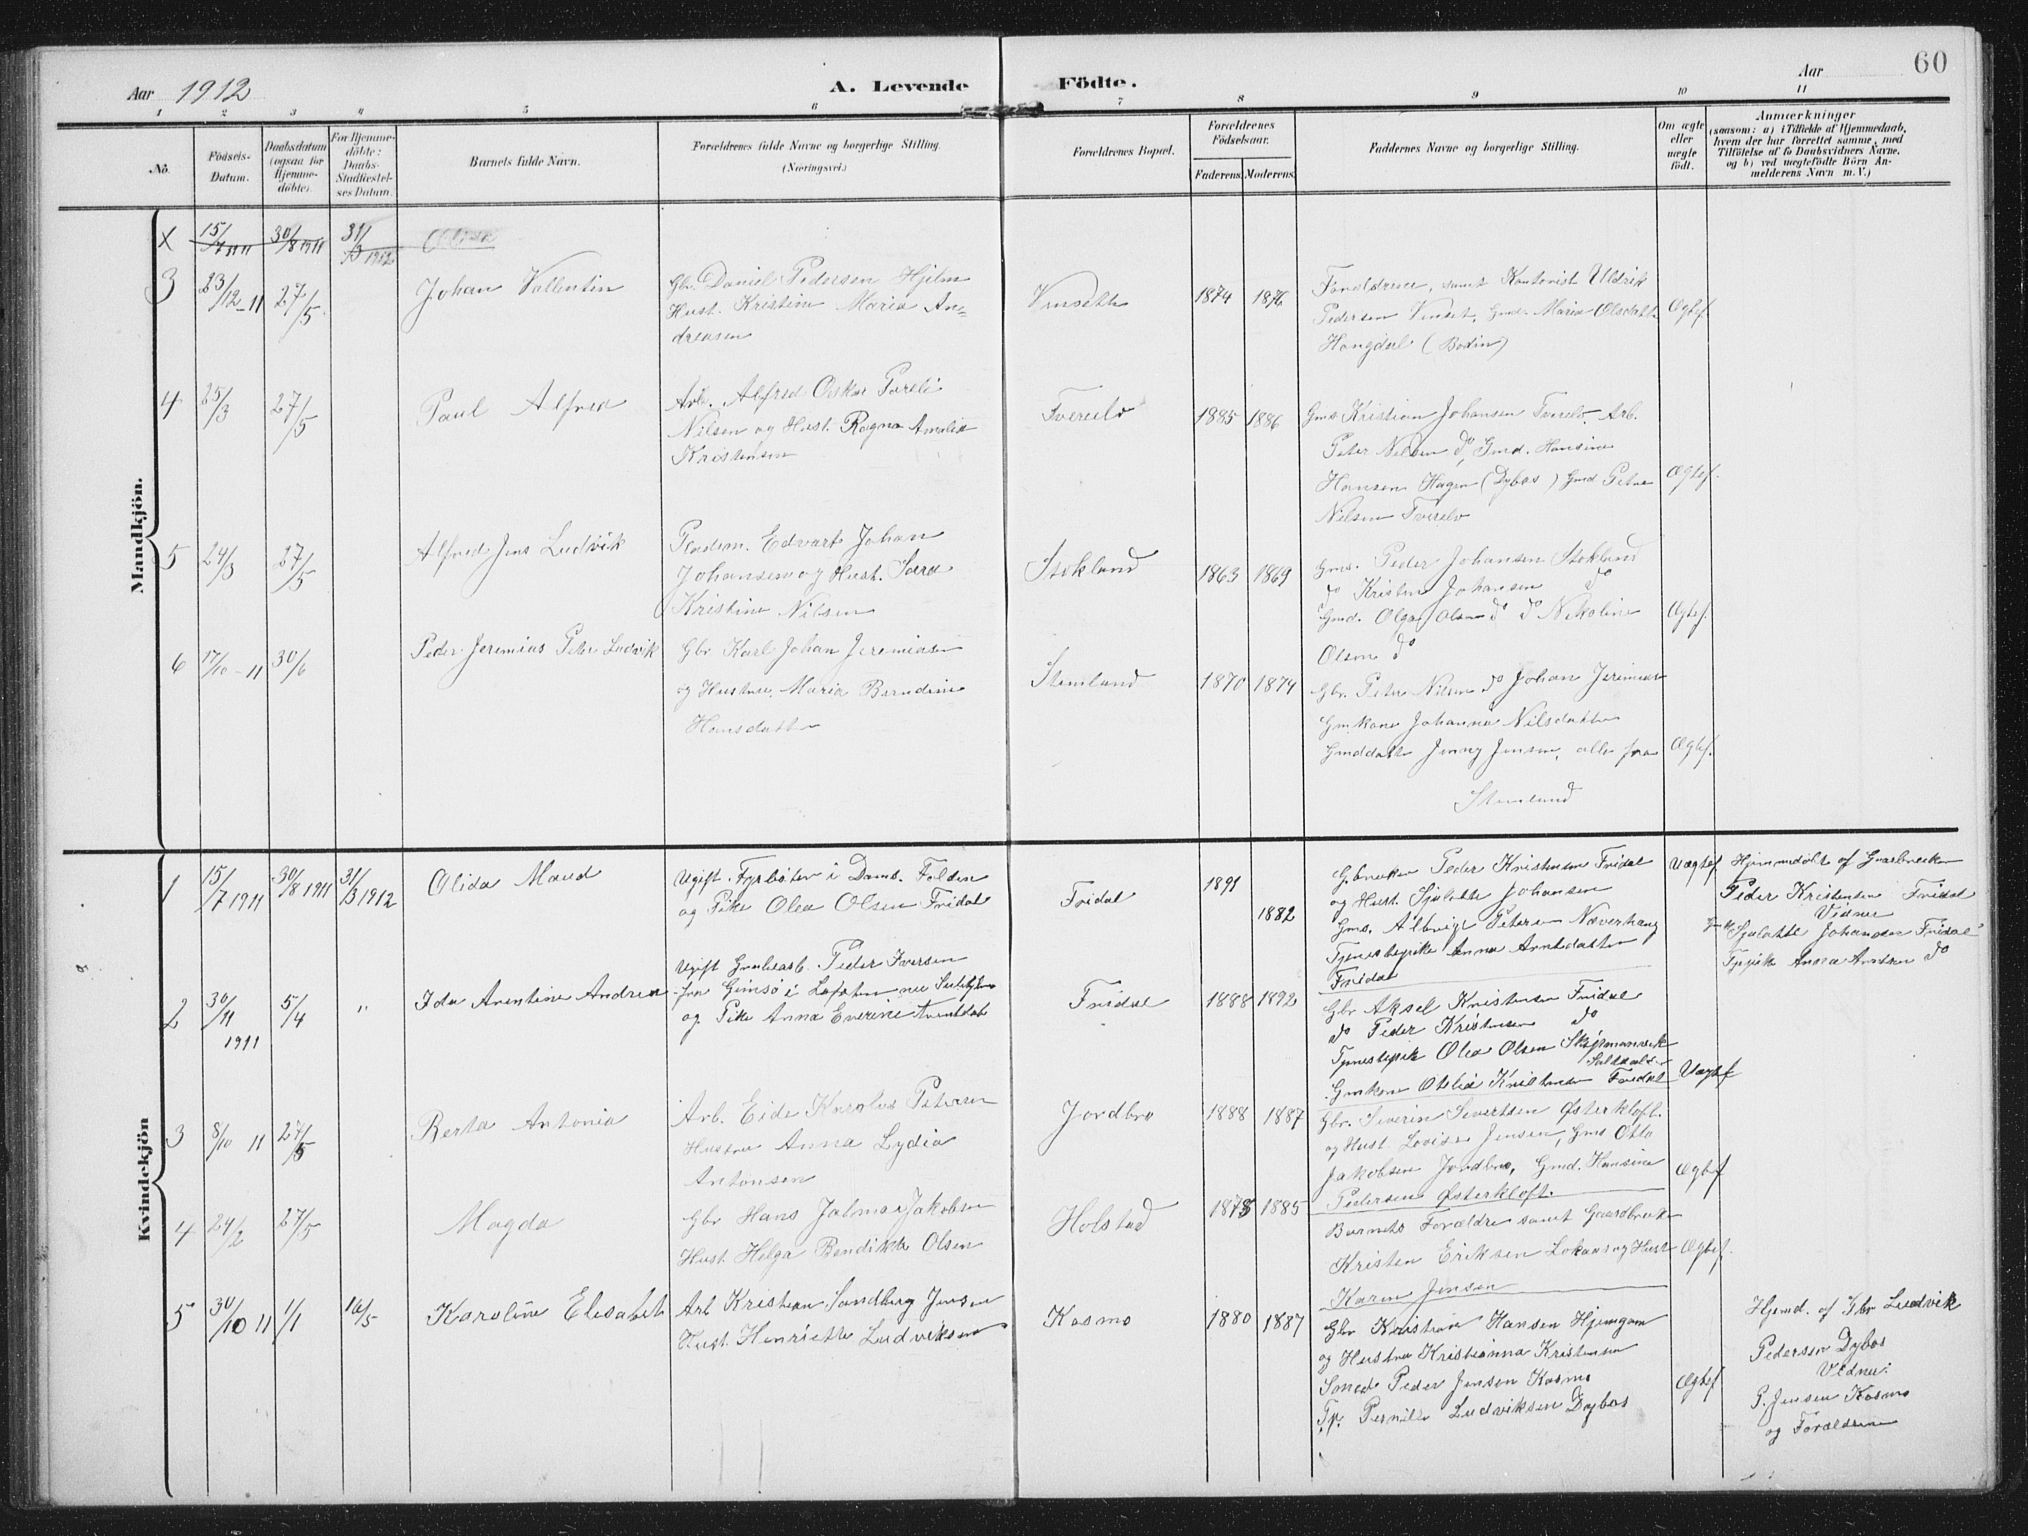 60
Aar 1912
A. Levende
Födte.
Aar
1 2 3 4 5 6 7 8 9 10 11
No.
Födsels-
Datum.
Daabsdatum
(ogsaa for
Hjemme-
döbte).
For Hjemme-
döbte:
Daabs-
Stadfæstel-
ses Datum.
Barnets fulde Navn.
Forældrenes fulde Navne og borgerlige Stilling.
(Næringsvei.)
Forældrenes Bopæl.
Forældrenes
Födselsaar.
Faderens. Moderens.
Faddernes Navne og borgerlige Stilling.
Om ægte
eller
uægte
födt.
Anmærkninger
(saasom: a) i Tilfælde af Hjemmedaab,
hvem der har forrettet samme, med
Tilföielse af to Daabsvidners Navne,
og b) ved uægtefödte Börn An-
melderens Navn m. V.)
Mandkjön.
X 15/7 1911 30/8 1911 31/3 1912 Olida
3 23/12-11 27/5 Johan Vallentin
Gbr. Daniel Pedersen Hjelm
Hust. Kristine Maria An=
dreasen
Vinsett 1874 1876
Forældrene, samt Kontorist Uldrik
Pedersen Vinset, Gmd. Maria Olsdatt.
Hongdal (Bodin)
Ægtef.
4 25/3 27/5 Paul Alfred
Arb. Alfred Oskar Poreli
Nilsen og Hust. Ragna Amalia
Kristensen
Tverelv 1885 1886
Gms. Kristian Johansen Tverelv. Arb.
Peter Nilsen do, Gmd. Hansine
Hansen Hagen (Dybos) Gmd Petra
Nilsen Tverelv
Ægtef.
5 24/3 27/5 Alfred Jens Ludvik
Pladsm. Edvart Johan
Johansen og Hust. Sara
Kristine Nilsen
Stokland 1863 1869
Gms. Peder Johansen Stokland
do Kristen Johansen do
Gmd. Olga Olsen do do Nikoline
Olsen do
Ægtef.
6 17/10-11 30/6 Peder Jeremias Peter Ludvik
Gbr Karl Johan Jeremiasen
og Hustru, Maria Berndine
Hansdatter
Stemland 1870 1874
Gbr. Peter Nilsen do Johan Jeremias
Gmkone Johanna Nilsdatter
Gmddatt Jenny Jensen, alle fra
Stemland
Ægtef.
Kvindekjön
1 15/7 1911 30/8 1911 31/3 1912 Olida Maud
Ugift. Fyrböter i Dams. Folden
og Pike Olea Olsen Fridal
Fridal 1891 1882
Gbruker Peder Kristensen Fridal
og Hust. Sjalotte Johansen
Gms. Albregt Petersen Næverhaug
Tjenestepike Anna Arntsdatter
Fridal
Uægtef
Hjemmdöbt af Gaardbruker
Peder Kristensen Fridal
Vidner
Gmk Sjalotte Johansen Fridal
Tjpike Anna Arntsen do
2 30/11 1911 5/4 " Ida Arentine Andrea
Ugift Grubearb. Peder Iversen
fra Gimsö i Lofoten
og Pike Anna Everine Arentdat
Fridal 1888 1892
Gbr Aksel Kristensen Fridal
do Peder Kristensen do
Tjenestepik Olea Olsen Skjpmanvik
Saltdal
Gmkone Otelia Kristensen Fridal
Uægtef
3 8/10 11 27/5 Berta Antonia
Arb. Eide Karolus Petersen
Hustru Anna Lydia
Antonsen
Jordbro 1888 1887
Gbr. Severin Severtsen Österkloft.
og Hust. Lovise Jensen, Gms Otto
Jakobsen Jordbro, Gmd. Hansine
Pedersen Österkloft.
Ægtef
4 24/2 27/5 Magda
Gbr Hans Jalmar Jakobsen
Hust. Helga Bendikte Olsen
Holstad 1875 1885
Barnets Forældre samt Gaardbruker
Kristen Eriksen Lokans og Hust
Karen Jensen
Ægtef.
5 30/10 11 1/1 16/5 Karoline Elesabet
Arb Kristian Sandberg Jensen
Hust. Henriette Ludviksen
Kosmo 1880 1887
Gbr Kristian Hansen Hjemgam
og Hustru Kristianna Kristensen
Smed Peder Jensen Kosmo
Tp. Pernille Ludviksen Dybos
Ægtef
Hjemd. af Gbr Ludvik
Pedersen Dybos
Vidner:
P. Jensen Kosmo
og Forældrene